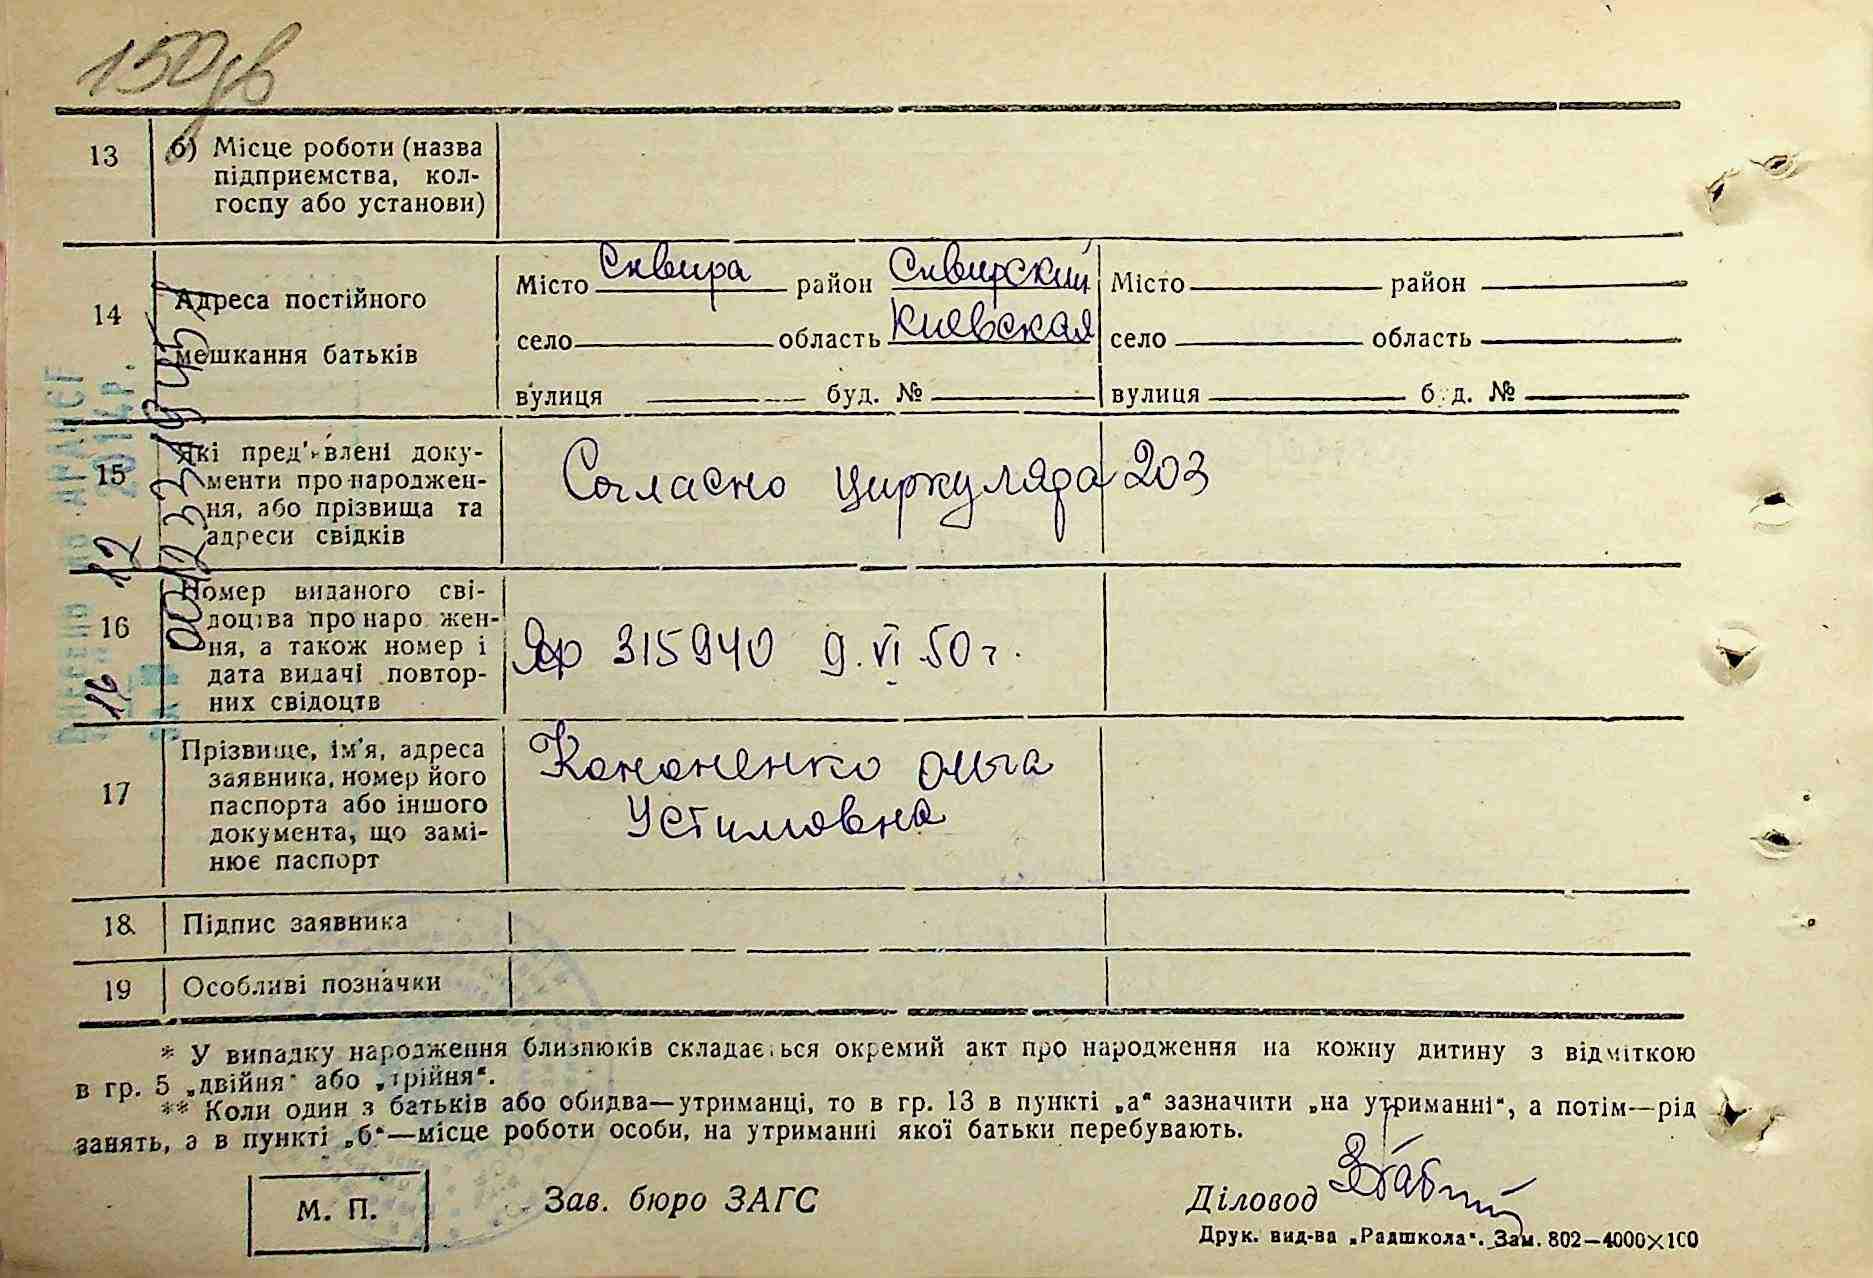 150
13
б) Місце роботи (назва
підприємства, кол-
госпу або установи)
14
Адреса постійного
мешкання батьків
Місто Сквира район Сквирский
село область Киевская
вулиця буд. №
Місто район
село область
вулиця буд. №
15
Які пред'явлені доку-
менти про народжен-
ня, або прізвища та
адреси свідків
Согласно циркуляра 203
16
Номер виданого сві-
доцтва про народжен-
ня, а також номер і
дата видачі повтор-
них свідоцтв
315940 9.VI.50 г.
17
Прізвище, ім'я, адреса
заявника, номер його
паспорта або іншого
документа, що замі-
нює паспорт
Кононенко Ольга
Устимовна
18
Підпис заявника
19
Особливі позначки
* У випадку народження близнюків складається окремий акт про народження на кожну дитину з відміткою
в гр. 5 „двійня“ або „трійня“.
** Коли один з батьків або обидва—утриманці, то в гр. 13 в пункті „а“ зазначити „на утриманні“, а потім—рід
занять, а в пункті „б“—місце роботи особи, на утриманні якої батьки перебувають.
М. П.
Зав. бюро ЗАГС
Діловод
Друк. вид-ва „Радшкола“. Зам. 802—4000×100